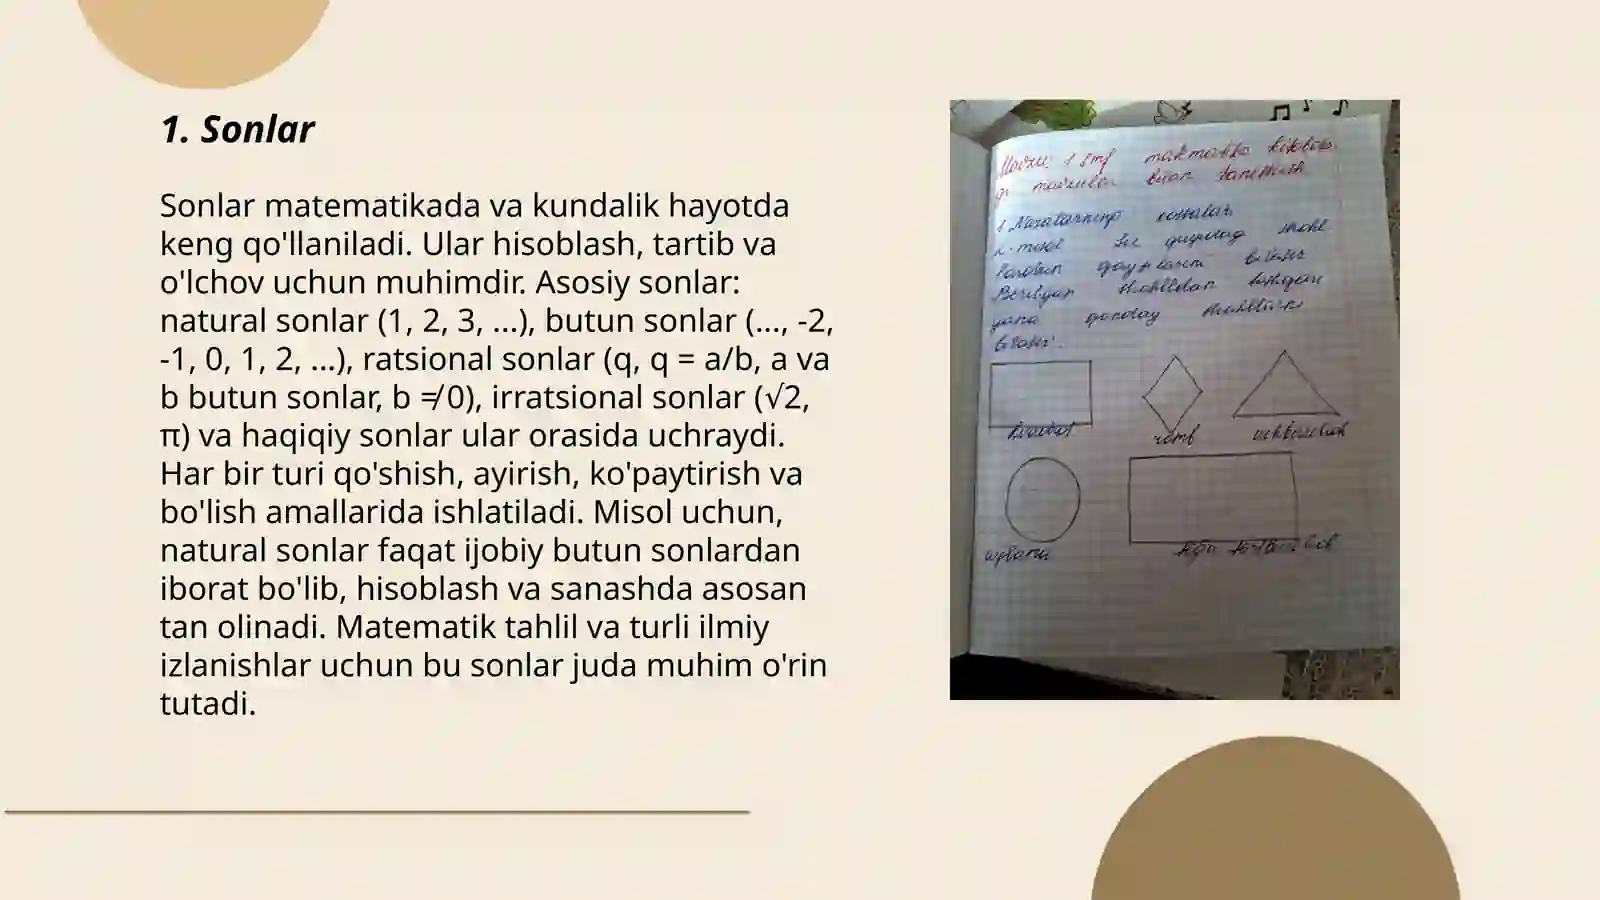 1. Sonlar
Sonlar matematikada va kundalik hayotda
keng qo'llaniladi. Ular hisoblash, tartib va
o'lchov uchun muhimdir. Asosiy sonlar:
natural sonlar (1, 2, 3, ...), butun sonlar (..., -2,
-1, 0, 1, 2, ...), ratsional sonlar (q, q = a/b, a va
b butun sonlar, b ≠ 0), irratsional sonlar (√2,
π) va haqiqiy sonlar ular orasida uchraydi.
Har bir turi qo'shish, ayirish, ko'paytirish va
bo'lish amallarida ishlatiladi. Misol uchun,
natural sonlar faqat ijobiy butun sonlardan
iborat bo'lib, hisoblash va sanashda asosan
tan olinadi. Matematik tahlil va turli ilmiy
izlanishlar uchun bu sonlar juda muhim o'rin
tutadi.
bilan tanishish
qanday
romb